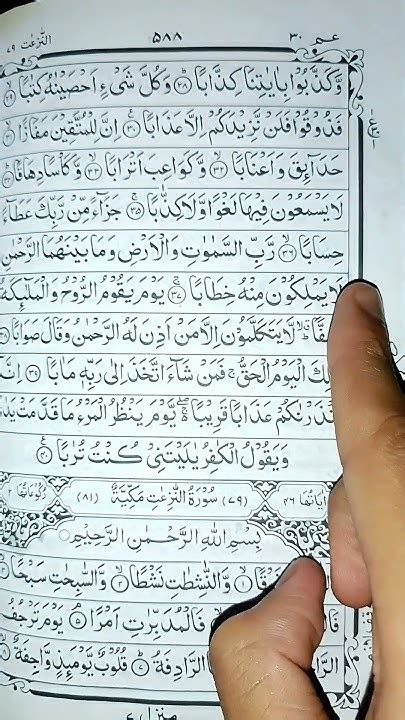 عم ٣٠ ٥٨٨ النّٰزعٰت ٧٩
وَّكَذَّبُوْا بِاٰيٰتِنَا كِذَّابًا ۞ وَكُلَّ شَيْءٍ اَحْصَيْنٰهُ كِتٰبًا ۞
فَذُوْقُوْا فَلَنْ نَّزِيْدَكُمْ اِلَّا عَذَابًا ۞ اِنَّ لِلْمُتَّقِيْنَ مَفَازًا ۞
حَدَآئِقَ وَاَعْنَابًا ۞ وَّكَوَاعِبَ اَتْرَابًا ۞ وَّكَاْسًا دِهَاقًا ۞
لَا يَسْمَعُوْنَ فِيْهَا لَغْوًا وَّلَا كِذّٰبًا ۞ جَزَآءً مِّنْ رَّبِّكَ عَطَآءً
حِسَابًا ۞ رَّبِّ السَّمٰوٰتِ وَالْاَرْضِ وَمَا بَيْنَهُمَا الرَّحْمٰنِ
لَا يَمْلِكُوْنَ مِنْهُ خِطَابًا ۞ يَوْمَ يَقُوْمُ الرُّوْحُ وَالْمَلٰٓئِكَةُ
لَّا يَتَكَلَّمُوْنَ اِلَّا مَنْ اَذِنَ لَهُ الرَّحْمٰنُ وَقَالَ صَوَابًا ۞
الْيَوْمُ الْحَقُّ ۚ فَمَنْ شَآءَ اتَّخَذَ اِلٰى رَبِّهٖ مَاٰبًا ۞ اِنَّآ
عَذَابًا قَرِيْبًا ۖۚ يَّوْمَ يَنْظُرُ الْمَرْءُ مَا قَدَّمَتْ
وَيَقُوْلُ الْكٰفِرُ يٰلَيْتَنِيْ كُنْتُ تُرٰبًا ۞
اٰيَاتُهَا ٤٦ (٧٩) سُوْرَةُ النّٰزِعٰتِ مَكِّيَّةٌ (٨١) رُكُوْعَاتُهَا ٢
بِسْمِ اللهِ الرَّحْمٰنِ الرَّحِيْمِ
وَّالنّٰشِطٰتِ نَشْطًا ۞ وَّالسّٰبِحٰتِ سَبْحًا ۞
فَالْمُدَبِّرٰتِ اَمْرًا ۞ يَوْمَ تَرْجُفُ
الرَّادِفَةُ ۞ قُلُوْبٌ يَّوْمَئِذٍ وَّاجِفَةٌ ۞